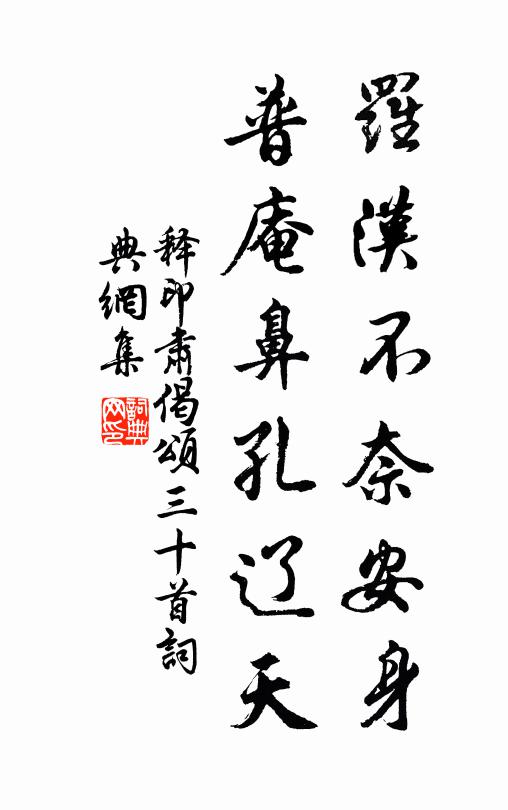 羅漢不奈安身
普庵鼻孔辽天
释印肅偈頌三十首詞
典網集
詞典
网印